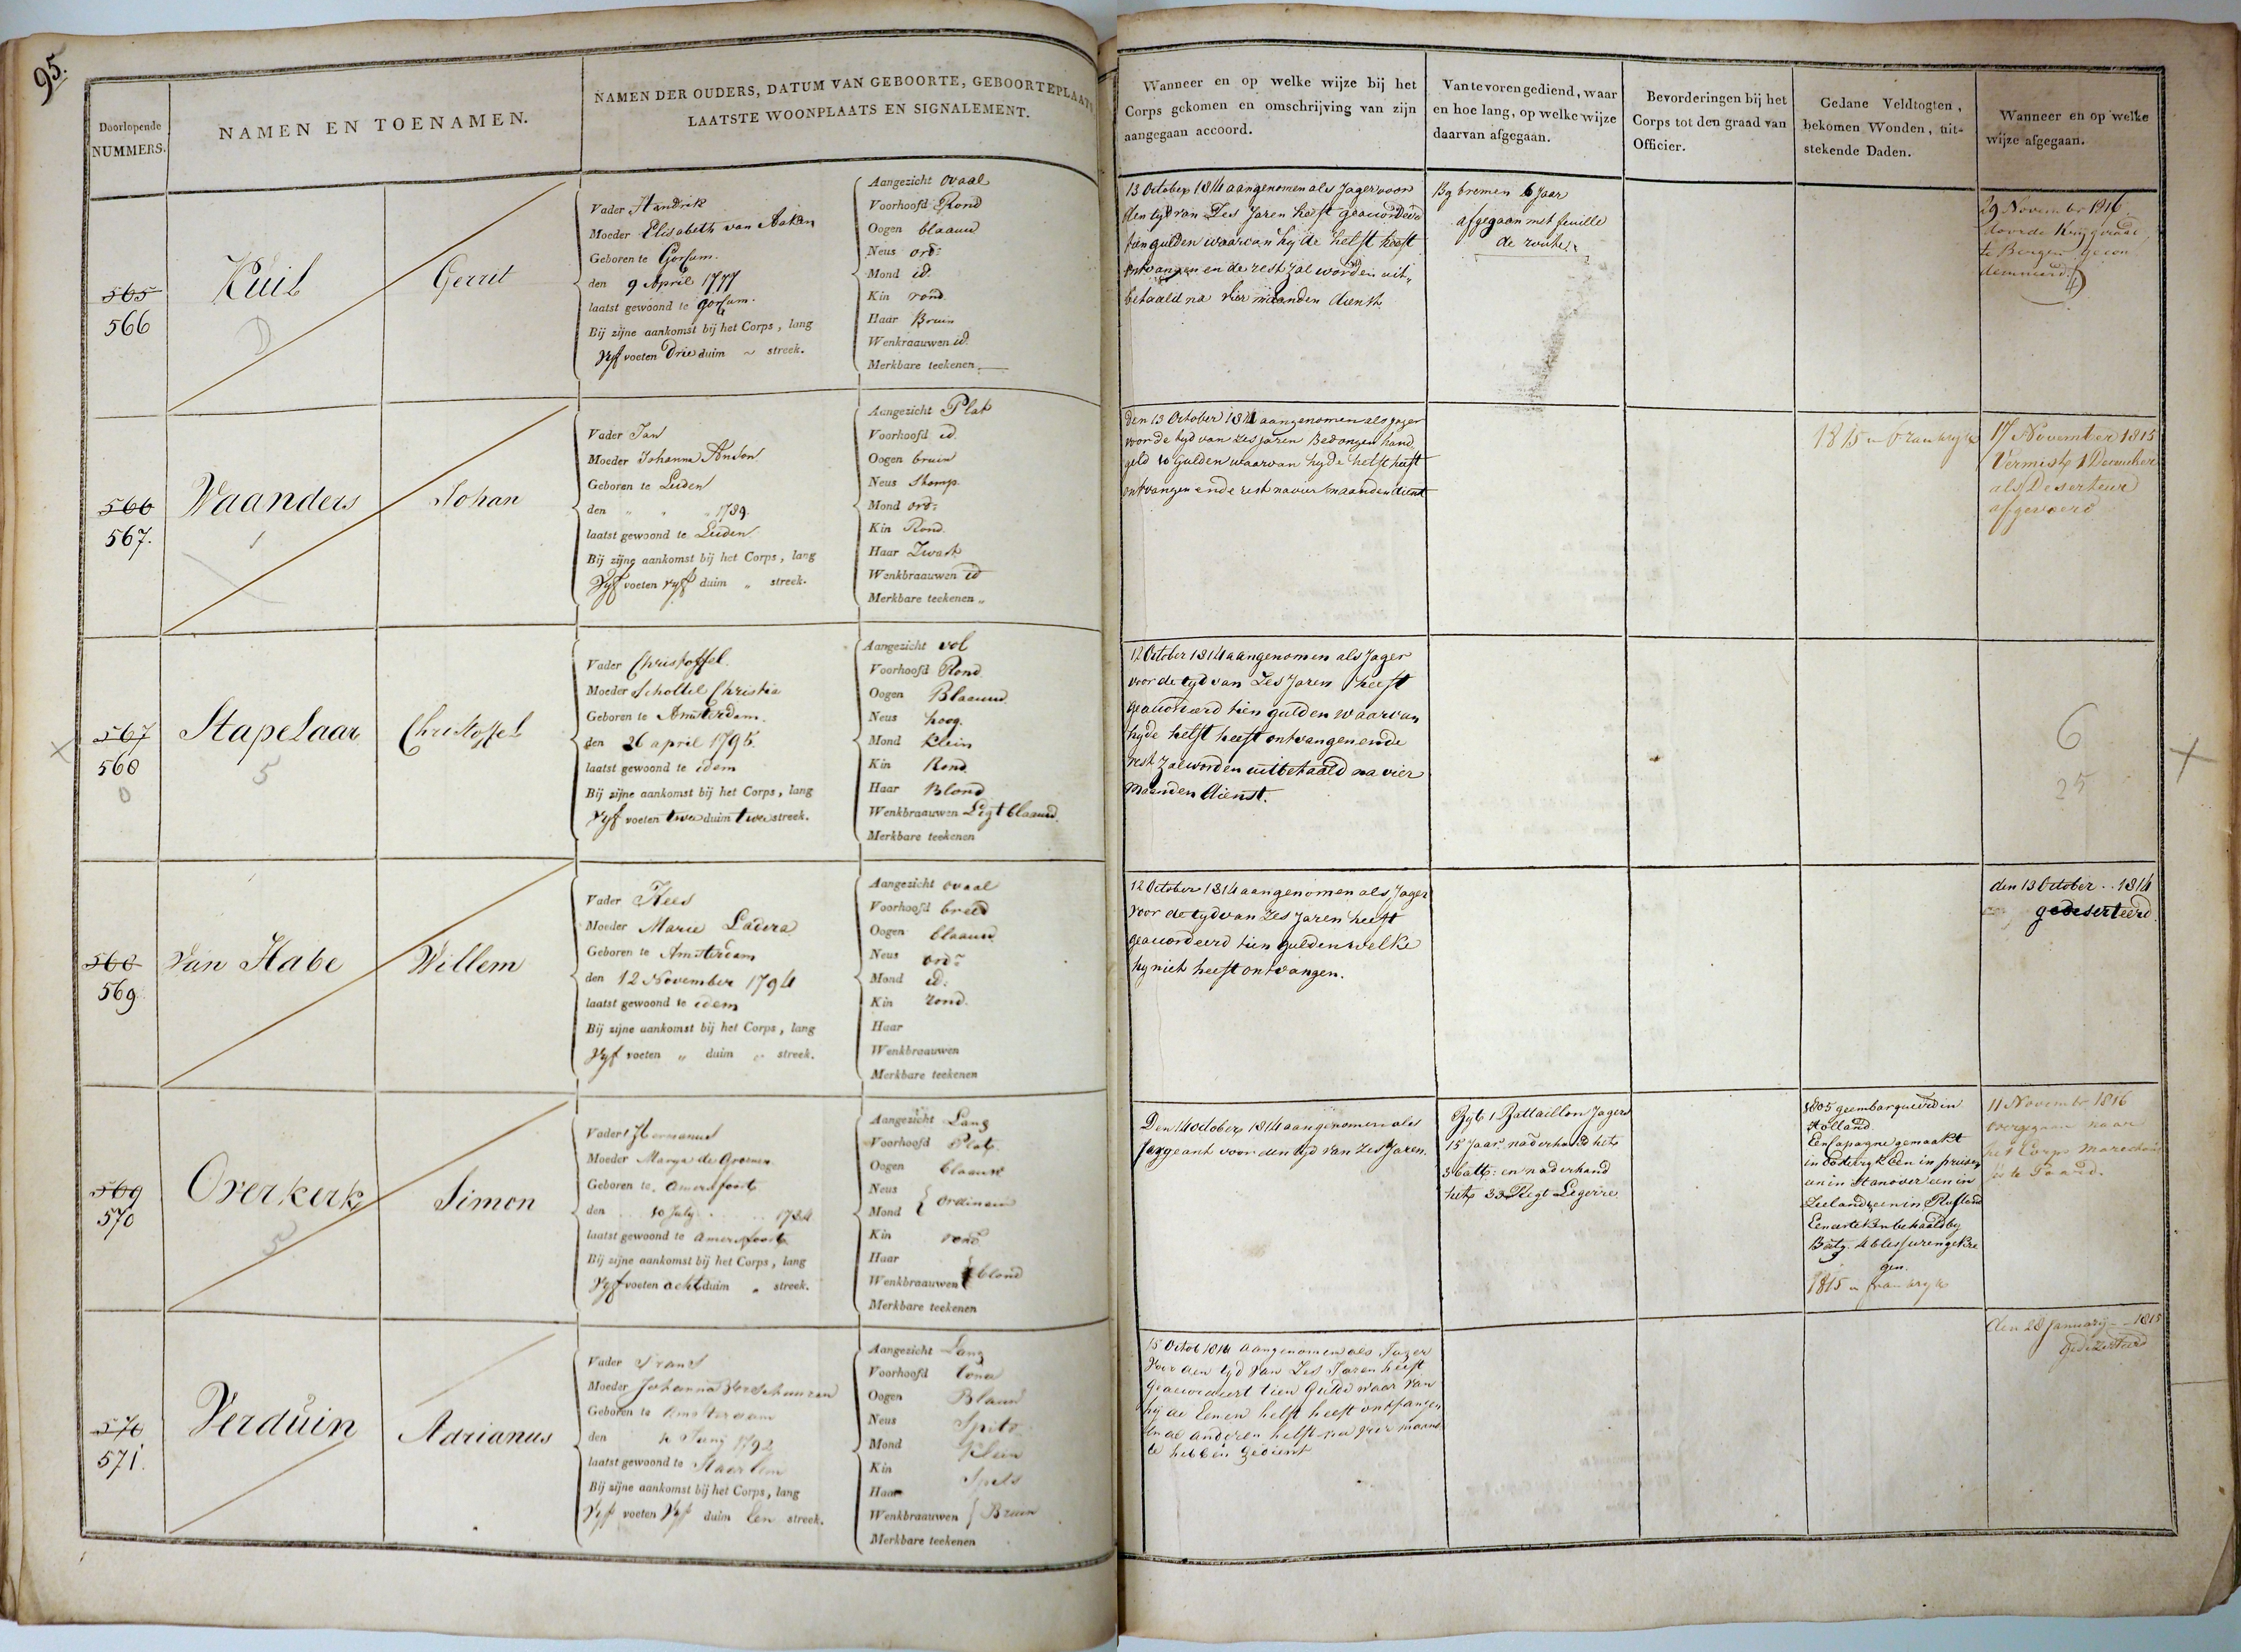 95.
Doorlopende
NUMMERS.
NAMEN EN TOENAMEN.
NAMEN DER OUDERS, DATUM VAN GEBOORTE, GEBOORTEPLAATS
LAATSTE WOONPLAATS EN SIGNALEMENT.
Wanneer en op welke wijze bij het
Corps gekomen en omschrijving van zijn
aangegaan accoord.
Van te voren gediend, waar
en hoe lang, op welke wijze
daarvan afgegaan.
Bevorderingen bij het
Corps tot den graad van
Officier.
Gedane Veldtogten,
bekomen Wonden, uit-
stekende Daden.
Wanneer en op welke
wijze afgegaan.
565
566
Kuil
Gerrit
Vader Handrik
Moeder Elisabeth van Aaken
Geboren te Gorkum.
den 9 April 1777
laatst gewoond te Gorkum.
Bij zijne aankomst bij het Corps, lang
Vyf voeten Drie duim ~ streek.
Aangezicht Ovaal
Voorhoofd Rond
Oogen blaauw
Neus ord:
Mond id:
Kin rond.
Haar Bruin
Wenkraauwen id.
Merkbare teekenen
13 October 1814 aangenomen als Jager voor
den tyd van Zes Jaren heeft geaccordeerd
tien gulden waarvan hy de helft heeft
ontvangen en de rest zal worden uit„
betaald na vier maanden dienst.
By bremen 6 Jaar
afgegaan met feuille
de route.
29 November 1816.
door de Krijgsraad
te Bergen gecon
demneerd.
566
567.
Waanders
Johan
Vader Jan
Moeder Johanna Anson
Geboren te Leiden
den " " 1789.
laatst gewoond te Leiden.
Bij zijne aankomst bij het Corps, lang
Vyf voeten vyf duim „ streek.
Aangezicht Plat
Voorhoofd id.
Oogen bruin
Neus Stomp.
Mond ord:
Kin Rond.
Haar Zwart
Wenkbraauwen id
Merkbare teekenen „
Den 13 October 1814 aangenomen als jager
voor de tyd van zes jaren Bedongen hand
geld 10 Gulden waarvan hy de helft heeft
ontvangen en de rest na vier maanden dienst
1815 in Frankryk
17 November 1815
Vermist 1 December
als Deserteur
afgevoerd
567
568
0
Stapelaar
5
Christoffel
Vader Christoffel.
Moeder Scholtil Christia
Geboren te Amsterdam.
den 26 april 1795.
laatst gewoond te idem
Bij zijne aankomst bij het Corps, lang
Vyf voeten twee duim twee streek.
Aangezicht vol
Voorhoofd Rond.
Oogen Blaauw.
Neus hoog.
Mond Klein
Kin Rond
Haar Blond
Wenkbraauwen Ligt blaauw.
Merkbare teekenen
12 October 1814 aangenomen als Jager
voor de tyd van Zes Jaren heeft
geaccordeerd tien gulden waarvan
hy de helft heeft ontvangen en de
rest zal worden uitbetaald na vier
maanden dienst.
6
25
568
569.
Van Habe
Willem
Vader Kees
Moeder Marie Ladera
Geboren te Amsterdam
den 12 November 1794
laatst gewoond te idem
Bij zijne aankomst bij het Corps, lang
Vyf voeten „ duim „ streek.
Aangezicht ovaal
Voorhoofd breed
Oogen blaauw
Neus ord:
Mond id:
Kin rond.
Haar
Wenkbraauwen
Merkbare teekenen
12 October 1814 aangenomen als Jager
voor de tyd van Zes Jaren heeft
geaccordeerd tien gulden welke
hy niet heeft ontvangen.
den 13 October .. 1814
gedeserteerd.
569
570
Overkerk
5
Simon
Vader Hermanus
Moeder Marya de Groenen
Geboren te Amersfoort
den 10 July 1784
laatst gewoond te amersfoort
Bij zijne aankomst bij het Corps, lang
Vyf voeten acht duim „ streek.
Aangezicht Lang
Voorhoofd Plat
Oogen blaauw
Neus
Mond Ordinair
Kin rond
Haar
Wenkbraauwen blond
Merkbare teekenen
Den 14 October 1814 aangenomen als
Sergeant voor den tyd van Zes Jaren.
By t 1 Battaillon Jagers
15 Jaar. naderhand het
3 batt: en naderhand
het 33 Regt Legerre
1805 geembarqueerd in
Holland.
Een Capagne gemaakt
in Oostryk Een in pruisen
en in Hanover een in
Zeeland een in Rusland
1815 in frankryk
11 November 1816
overgegaan naar
het Corps Marechaus
sée te Paard.
570
571.
Verduin
Adrianus
Vader Frans
Moeder Johanna Verschuuren
Geboren te Amsterdam
den 4 Junij 1792
laatst gewoond te Haarlem
Bij zijne aankomst bij het Corps, lang
Vyf voeten Vyf duim Een streek.
Aangezicht Lang
Voorhoofd
Oogen Blauw
Neus Spits
Mond Klein
Kin Spits
Haar
Wenkbraauwen Bruin
Merkbare teekenen
15 Octob 1814 aangenomen als Jager
voor den tyd van Zes Jaren heeft
Geaccordeert tien Gulde waar van
hij de Eenen helft heeft ontfangen
en de anderen helft na vier maand
te hebben gedient
den 28 January - - 1815
gedezerteerd